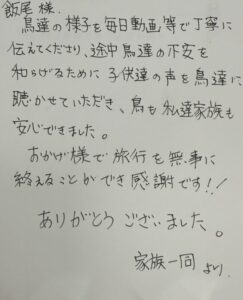 飯尾様.
鳥達の様子を毎日動画等で丁寧に
伝えてくださり、途中鳥達の不安を
和らげるために子供達の声を鳥達に
聴かせていただき、鳥も私達家族も
安心できました。
おかげ様で旅行を無事に
終えることができ感謝です!!
ありがとうございました。
家族一同より.